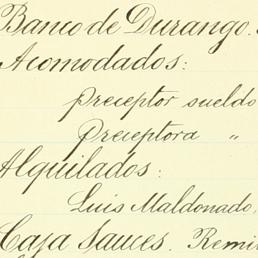 Banco de Durango.
Acomodados:
preceptor sueldo
preceptora "
Alquilados:
Luis Maldonado,
Caja Sauces. Remi